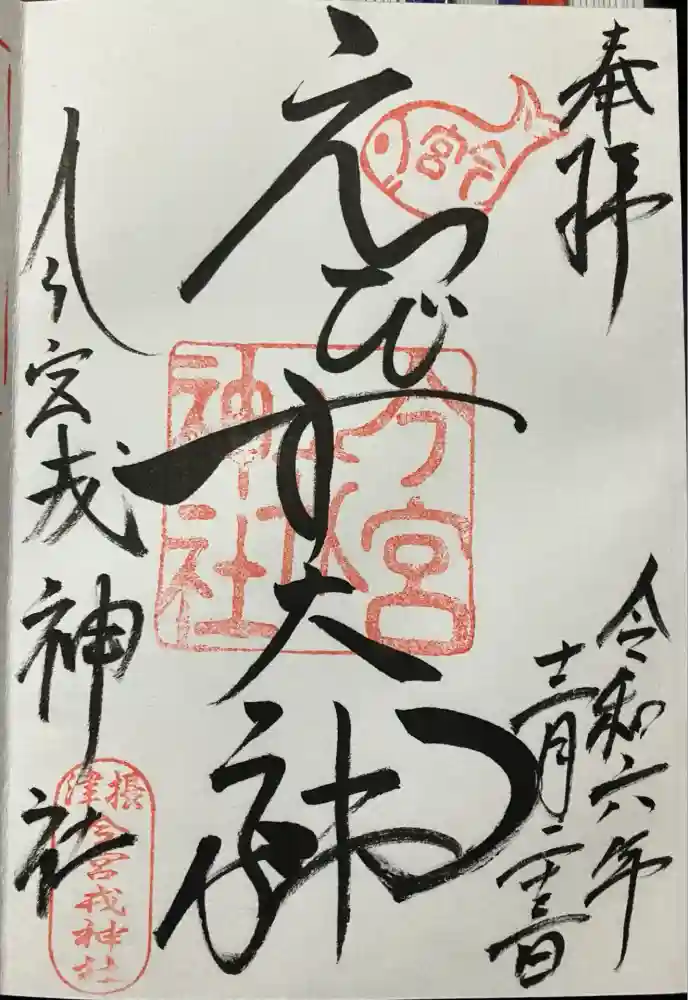 奉拝
令和六年
十二月二十三日
今宮
えびす大神
今宮
戎
神社
今宮戎神社
摂津
今宮戎神社